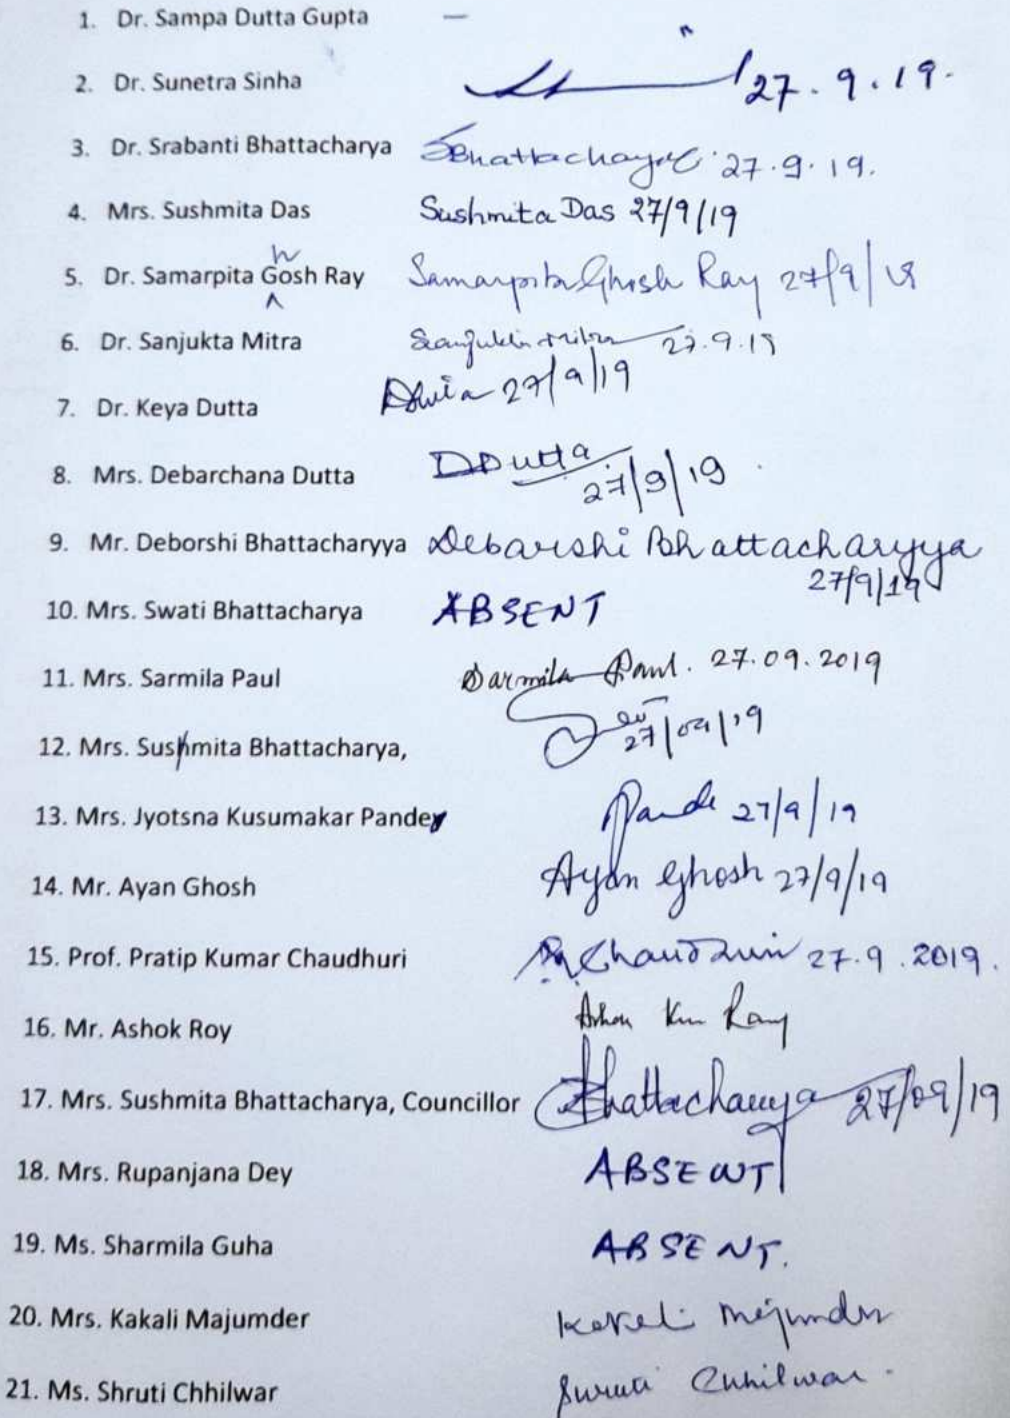 1. Dr. Sampa Dutta Gupta —
2. Dr. Sunetra Sinha 27.9.19.
3. Dr. Srabanti Bhattacharya SBhattacharya 27.9.19.
4. Mrs. Sushmita Das Sushmita Das 27/9/19
h
5. Dr. Samarpita Gosh Ray Samarpita Ghosh Ray 27/9/19
^
6. Dr. Sanjukta Mitra Sanjukta Mitra 27.9.19
7. Dr. Keya Dutta 27/9/19
8. Mrs. Debarchana Dutta DDutta
27/9/19
9. Mr. Deborshi Bhattacharyya Debarshi Bhattacharyya
27/9/19
10. Mrs. Swati Bhattacharya ABSENT
11. Mrs. Sarmila Paul Sarmila Paul. 27.09.2019
12. Mrs. Sushmita Bhattacharya, 27/09/19
13. Mrs. Jyotsna Kusumakar Pandey Pande 27/9/19
14. Mr. Ayan Ghosh Ayan Ghosh 27/9/19
15. Prof. Pratip Kumar Chaudhuri Chaudhuri 27.9.2019.
16. Mr. Ashok Roy Ashok Km Ray
17. Mrs. Sushmita Bhattacharya, Councillor Bhattacharya 27/09/19
18. Mrs. Rupanjana Dey ABSENT
19. Ms. Sharmila Guha ABSENT.
20. Mrs. Kakali Majumder Kakali Majumder
21. Ms. Shruti Chhilwar Shruti Chhilwar.